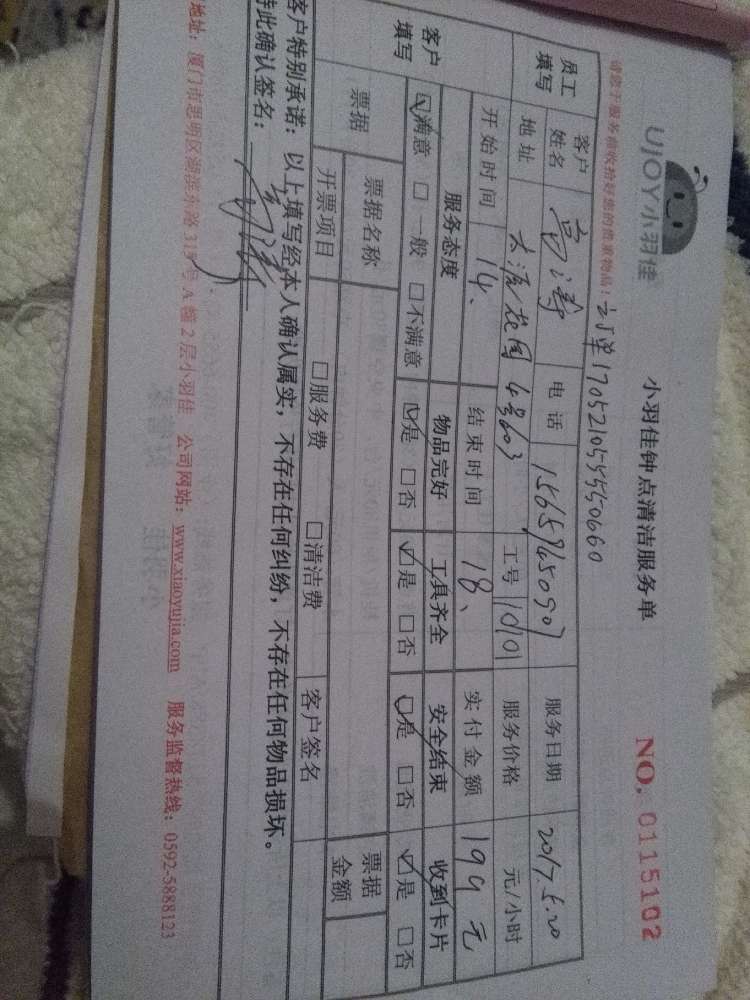 UJOY小羽佳
小羽佳钟点清洁服务单
NO. 0115102
请您于服务前收拾好您的贵重物品!
订单17052105550660
员工填写 客户姓名 高涛 电话 服务日期 2017.5.20
地址 4号603 工号 10101 服务价格 元/小时
开始时间 14、 结束时间 18、 实付金额 199元
客户填写 服务态度 物品完好 工具齐全 安全结束 收到卡片
☑满意 □一般 □不满意 ☑是 □否 ☑是 □否 ☑是 □否 ☑是 □否
票据 票据名称 票据金额
开票项目 □服务费 □清洁费 客户签名
客户特别承诺:以上填写经本人确认属实,不存在任何纠纷,不存在任何物品损坏。
特此确认签名:
地址:厦门市思明区湖滨东路319号A幢2层小羽佳 公司网站:www.xiaoyujia.com 服务监督热线:0592-5888123